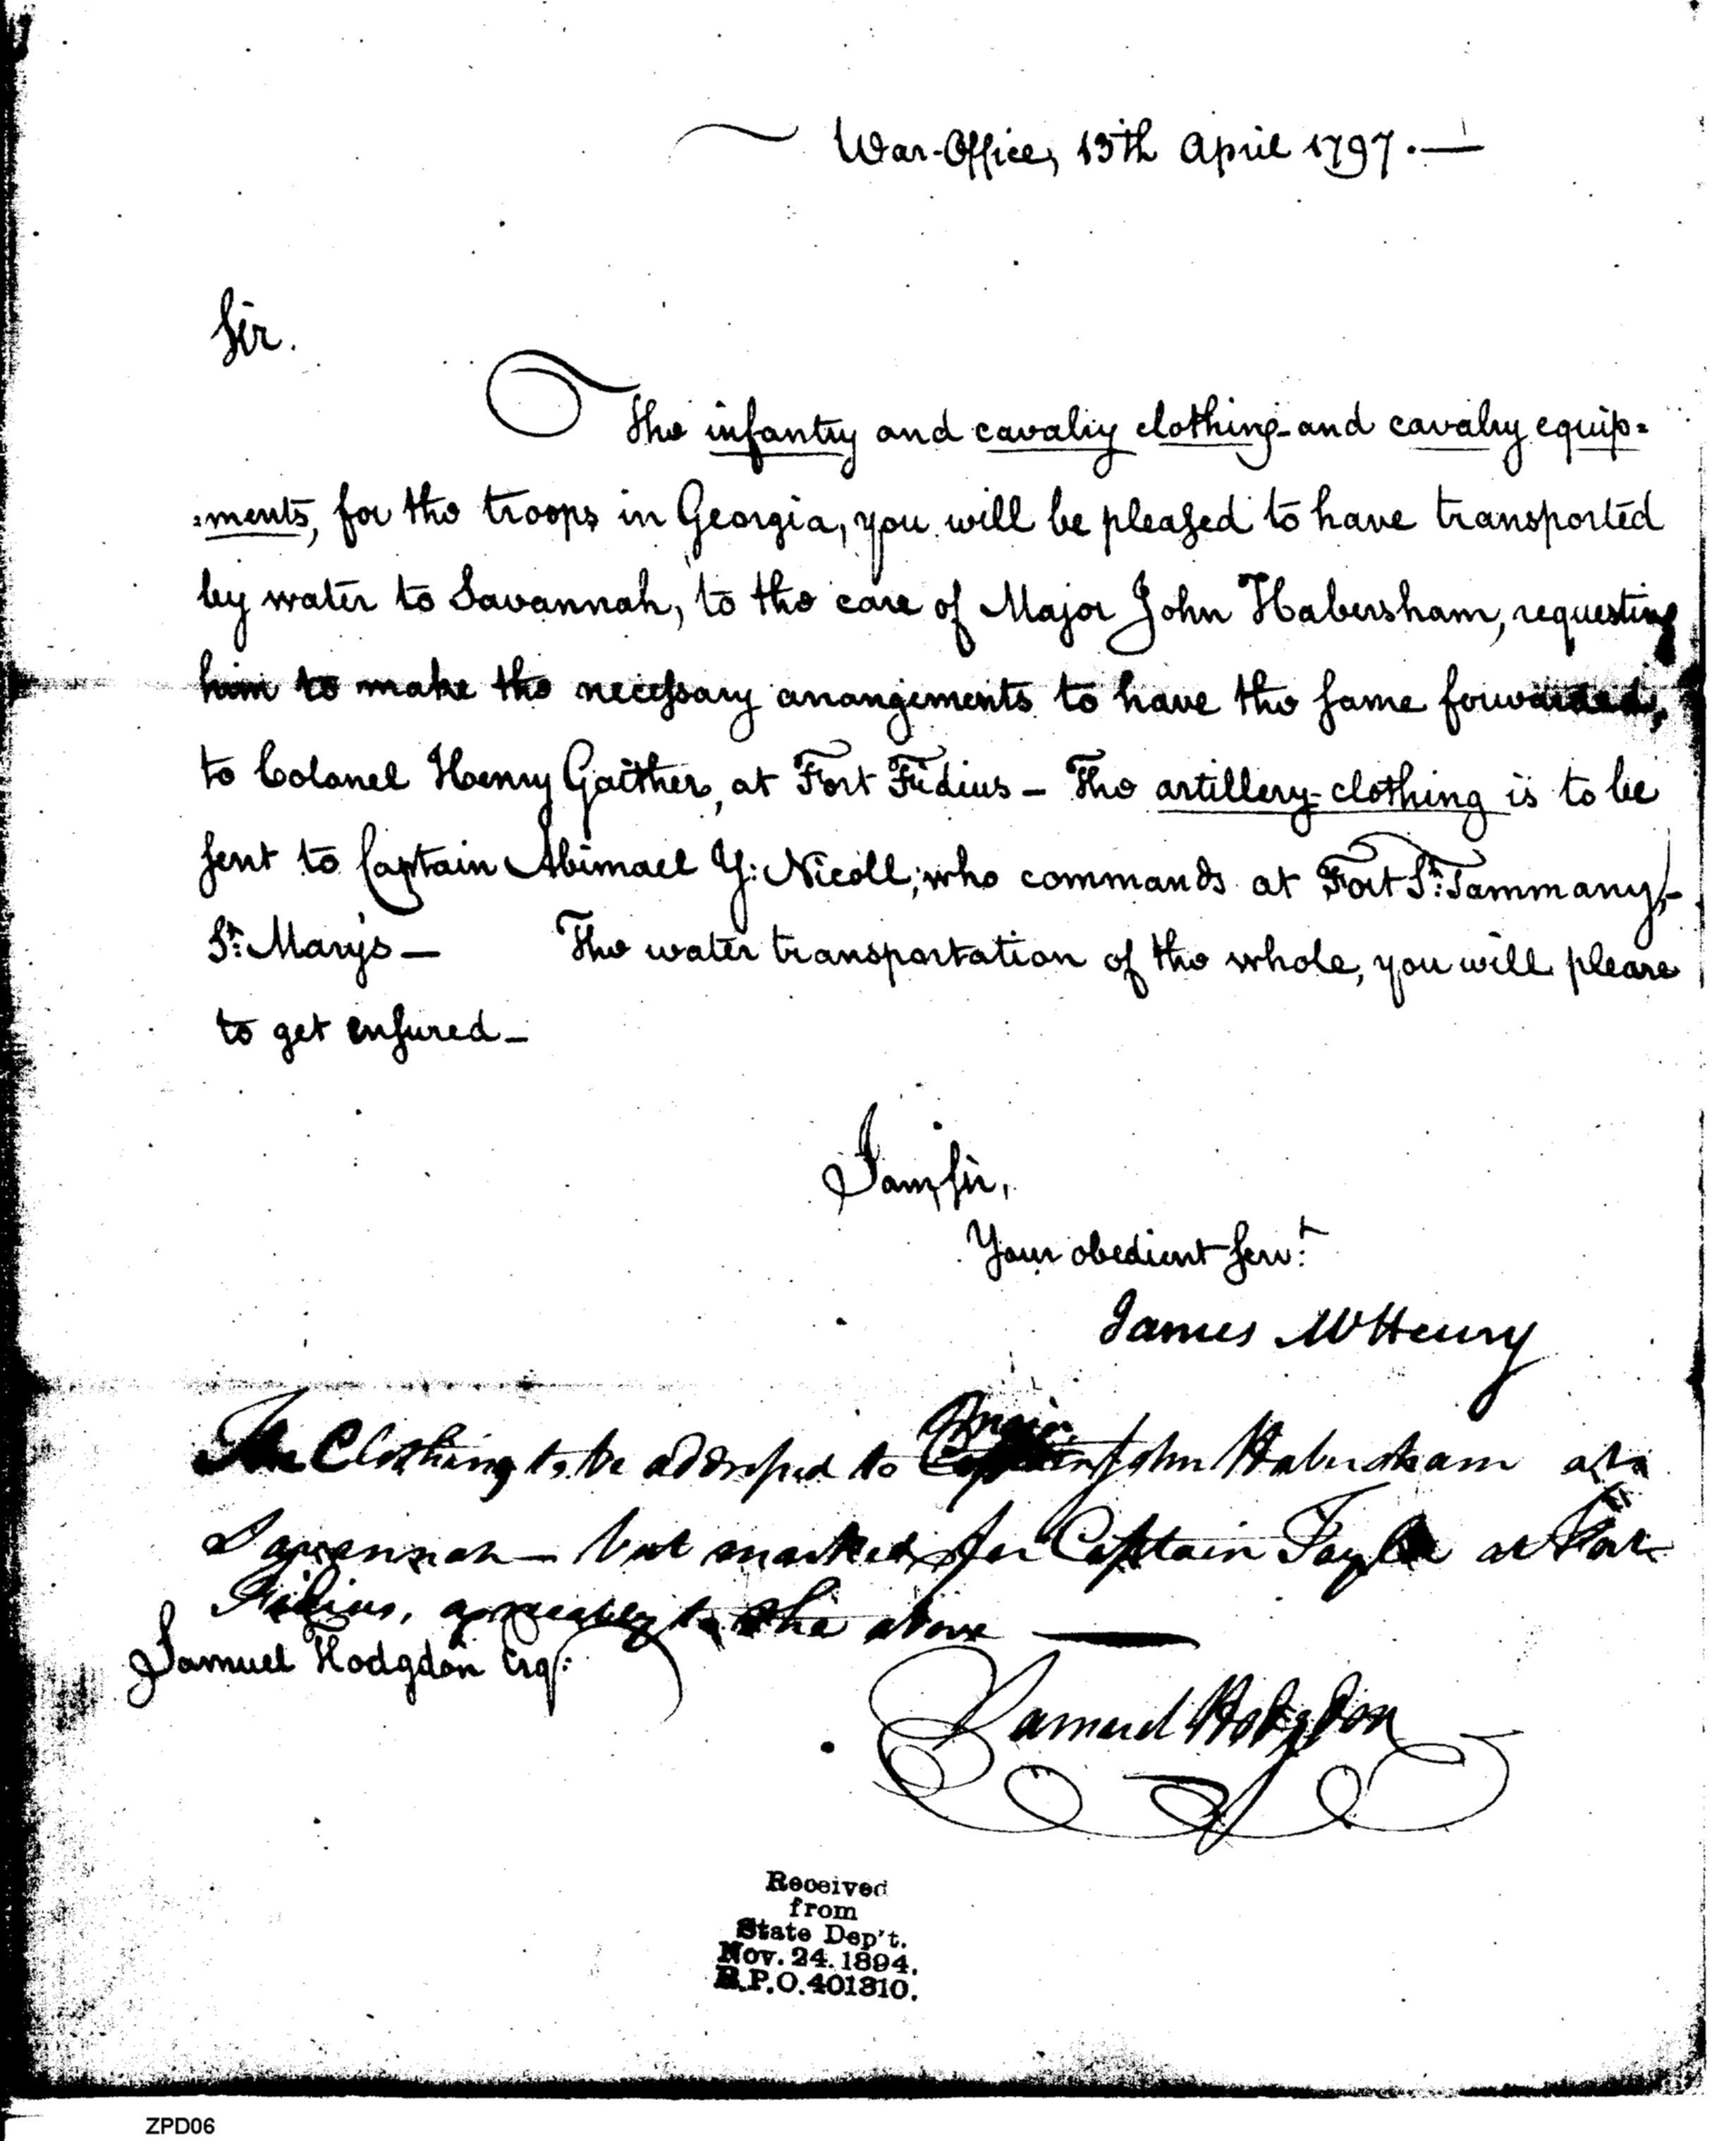 War-Office, 13th April 1797.—
Sir.
The infantry and cavalry clothing and cavalry equip=
=ments, for the troops in Georgia, you will be pleased to have transported
by water to Savannah, to the care of Major John Habersham, requesting
him to make the necessary arrangements to have the same forwarded,
to Colonel Henry Gaither, at Fort Fidius – The artillery-clothing is to be
sent to Captain Abimael Y: Nicoll, who commands at Fort St: Tammany,-
St: Mary's — The water transportation of the whole, you will please
to get ensured –
I am, Sir,
Your obedient Servt:
James McHenry
The Clothing to be addressed to Major John Habersham at
Savannah — but marked for Captain at Fort
Fidius, agreeably to the above —
Samuel Hodgdon Esq:
Samuel Hodgdon
Received
from
State Dep't.
Nov. 24. 1894.
R.P.O. 401310.
ZPD06